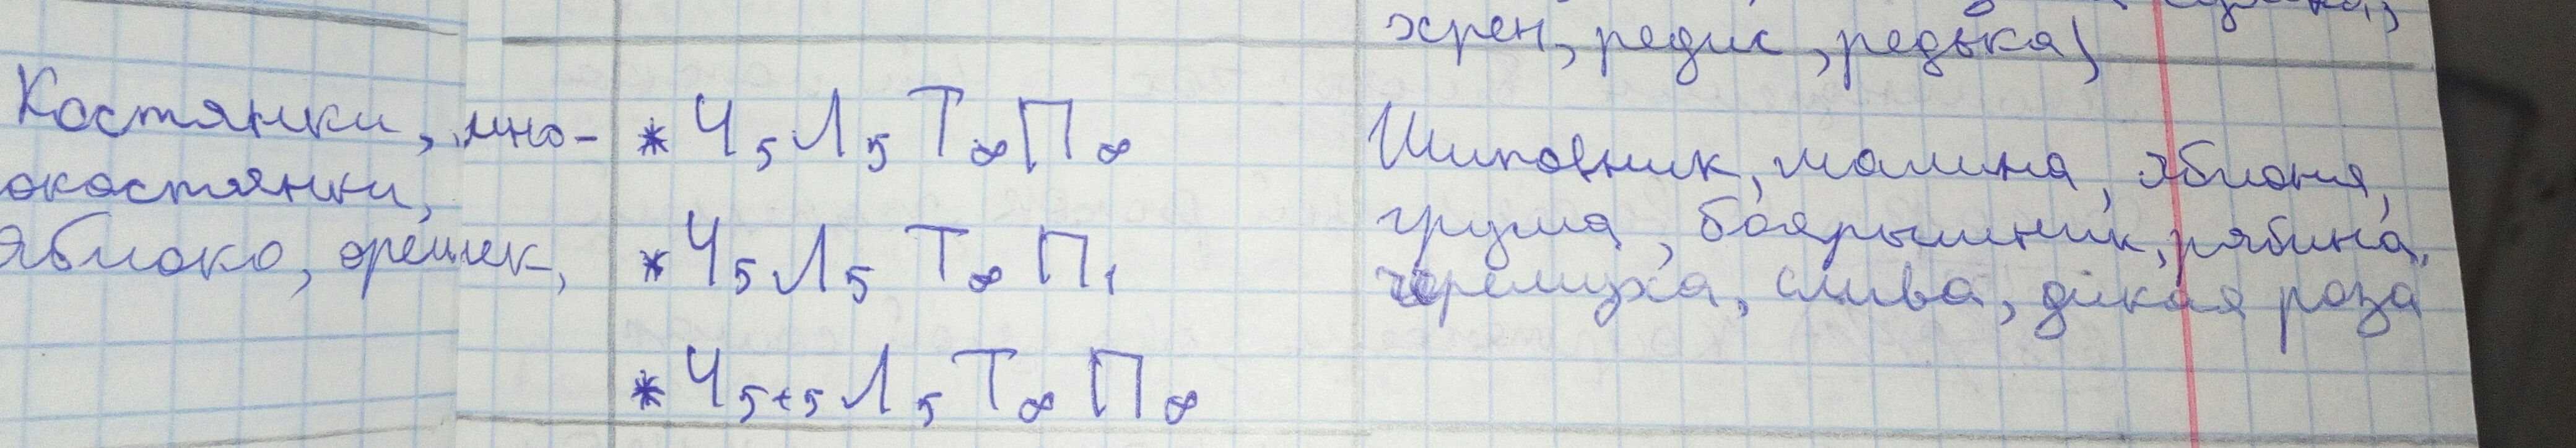 хрен, редис, редька)
Костянки, мно-
окостянки,
яблоко, орешек,
* Ч5 Л5 Т∞ П∞
* Ч5 Л5 Т∞ П1
* Ч5+5 Л5 Т∞ П∞
Шиповник, малина, яблоня,
груша, боярышник, рябина,
черемуха, слива, дикая роза